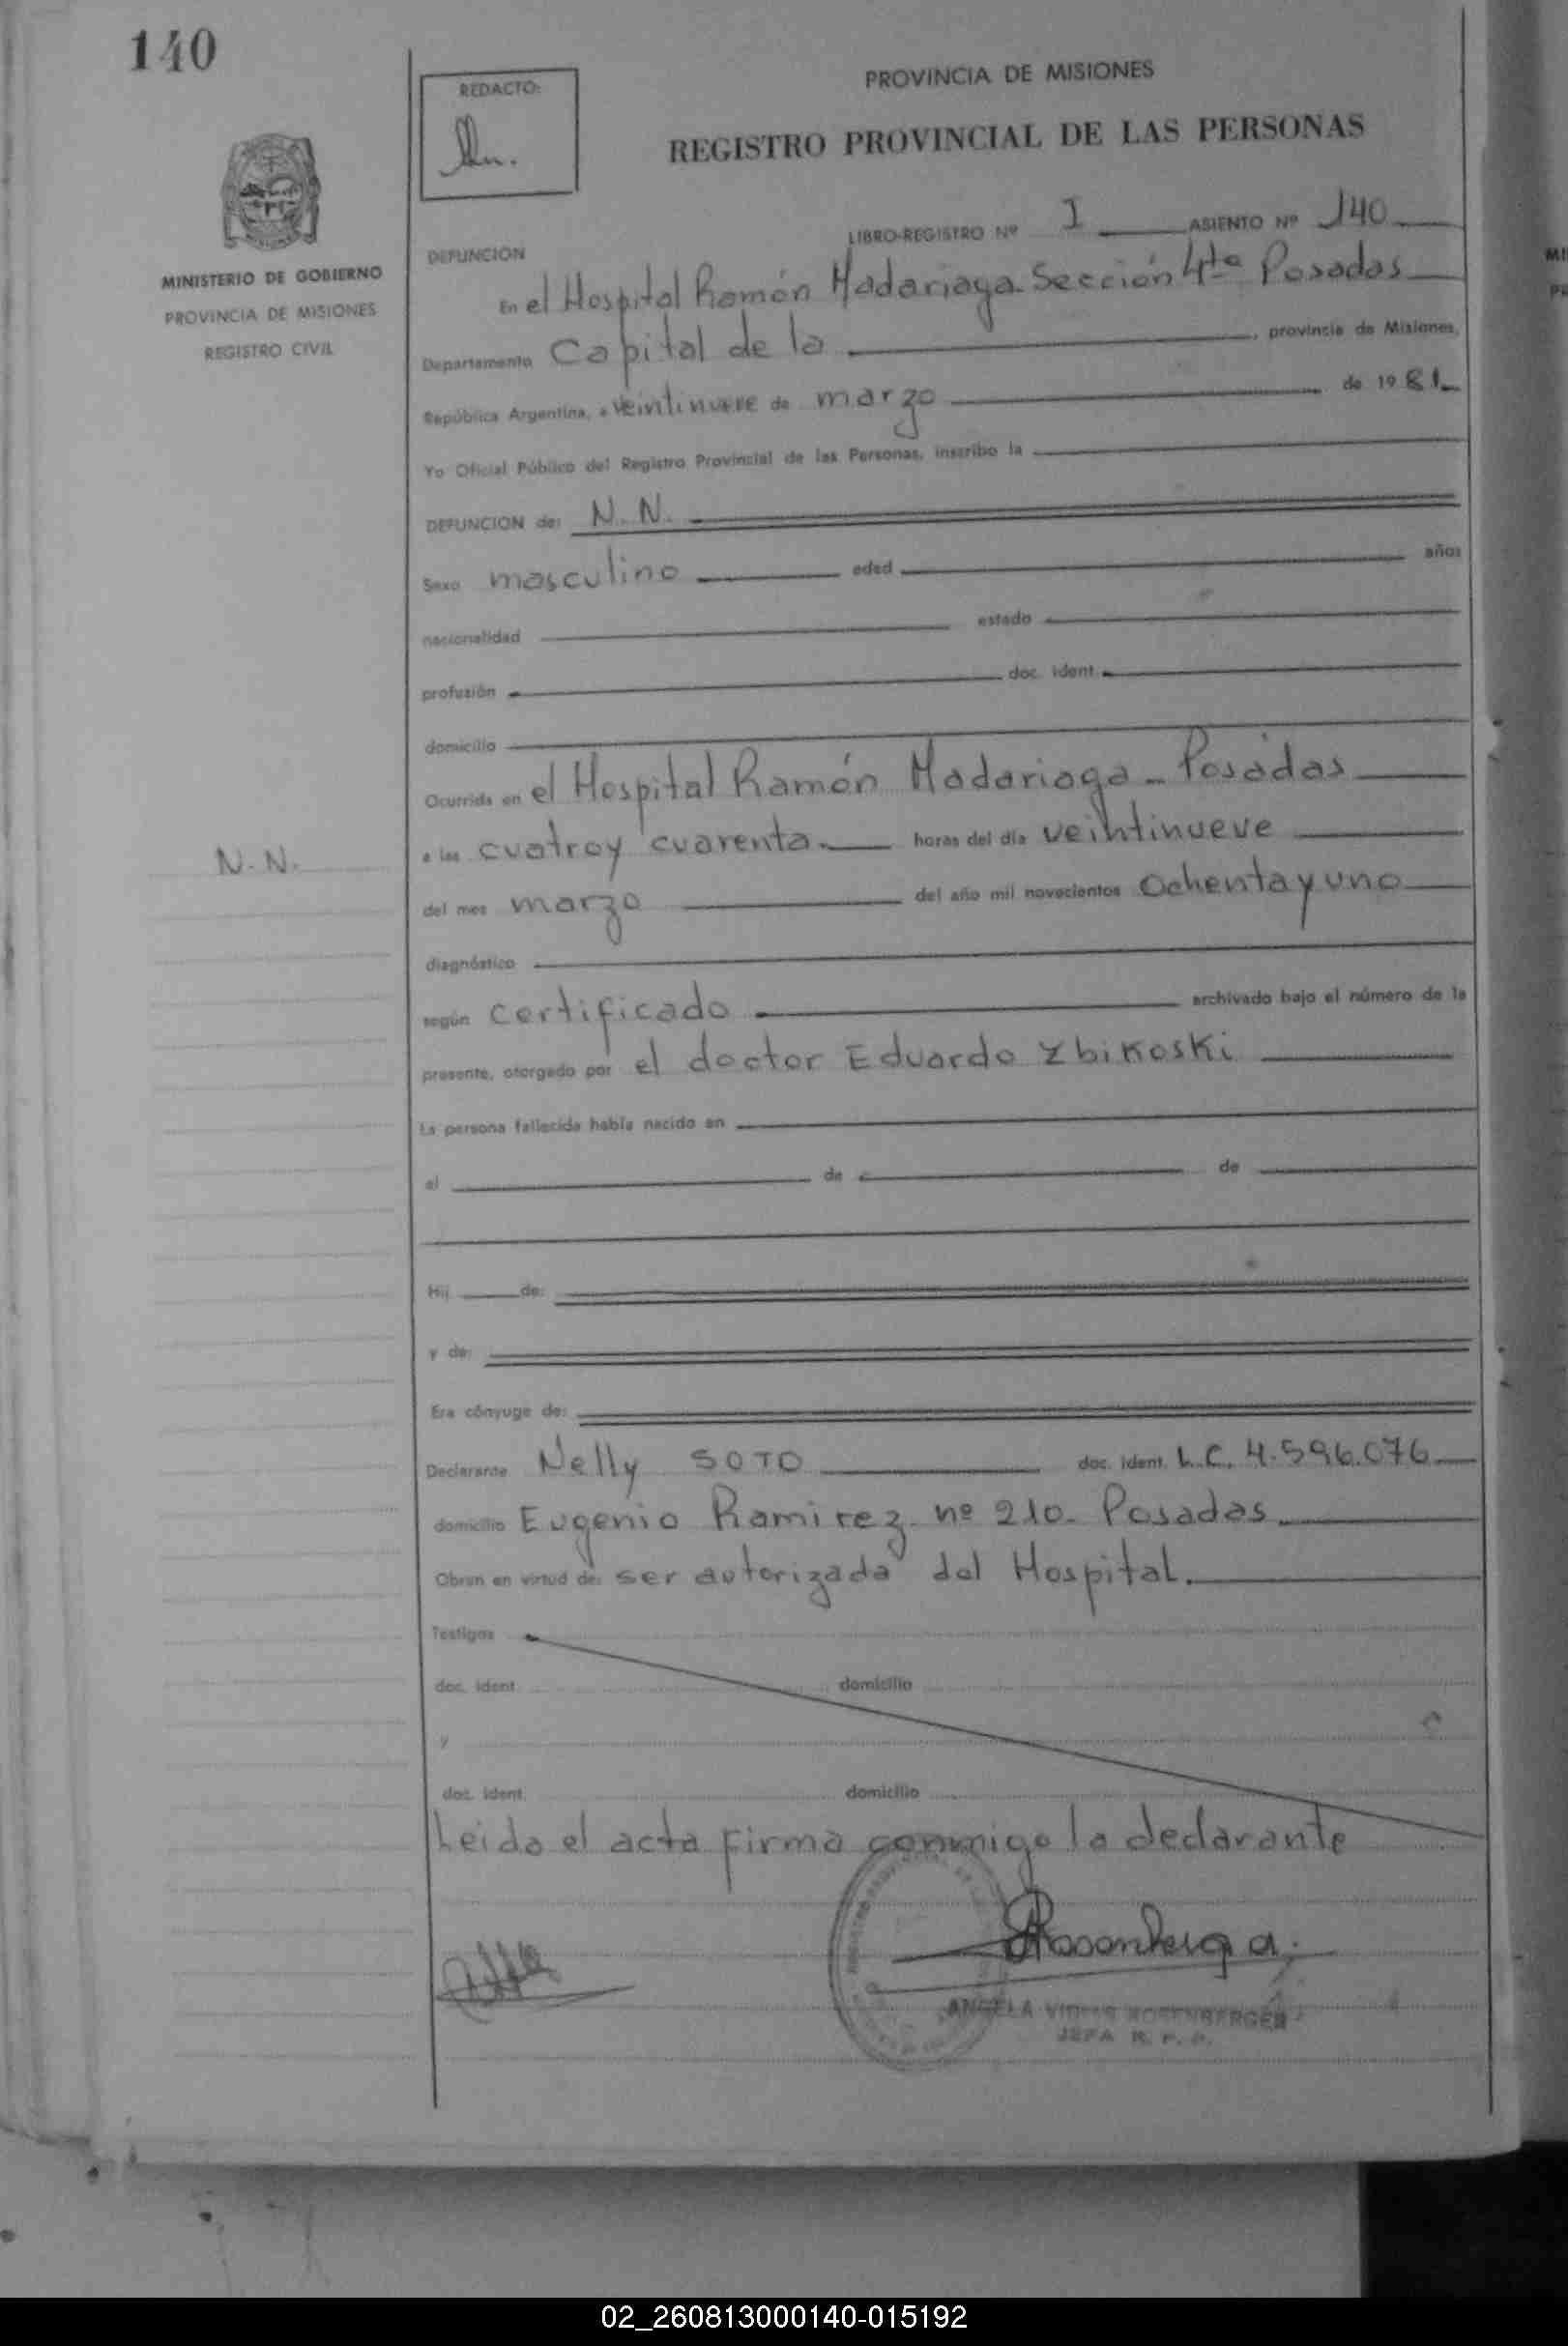 140
REDACTO:
PROVINCIA DE MISIONES
REGISTRO PROVINCIAL DE LAS PERSONAS
LIBRO-REGISTRO Nº I ASIENTO Nº 140
MINISTERIO DE GOBIERNO
PROVINCIA DE MISIONES
REGISTRO CIVIL
DEFUNCION
En el Hospital Ramón Madariaga Sección 4ta Posadas
Departamento Capital de la , provincia de Misiones,
República Argentina, a veintinueve de marzo de 1981
Yo Oficial Público del Registro Provincial de las Personas, inscribo la
DEFUNCION de: N.N.
Sexo masculino edad años
nacionalidad estado
profusión doc. ident.
domicilio
Ocurrida en el Hospital Ramón Madariaga - Posadas
a las cuatro y cuarenta horas del día veintinueve
N.N.
del mes marzo del año mil novecientos ochenta y uno
diagnóstico
según certificado archivado bajo el número de la
presente, otorgado por el doctor Eduardo Zbikoski
La persona fallecida había nacido en
el de de
Hij de:
y de:
Era cónyuge de:
Declarante Nelly SOTO doc. ident. L.C. 4.596.076
domicilio Eugenio Ramirez nº 210. Posadas
Obran en virtud de: ser autorizada del Hospital.
Testigos
doc. ident. domicilio
y
doc. ident. domicilio
Leida el acta firma conmigo la declarante
Rosenberg a.
ANGELA ROSENBERGER
JEFA R. P. P.
02_260813000140-015192